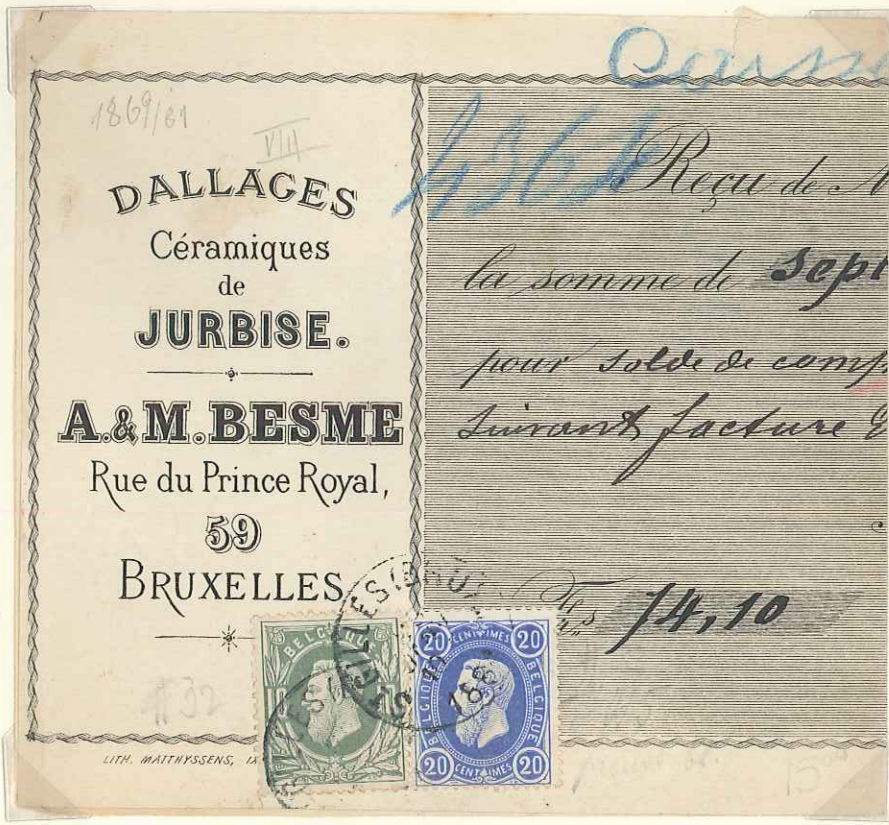 1869/81
VIII
DALLAGES
Céramiques
de
JURBISE.
A.&M.BESME
Rue du Prince Royal,
59
BRUXELLES
#32
LITH. MATTHYSSENS, IX
Reçu de M
la somme de Sept
pour solde de comp
suivant facture
74,10
BELGIQUE
20 CENTIMES 20
BELGIQUE BELGIQUE
20 CENTIMES 20
15